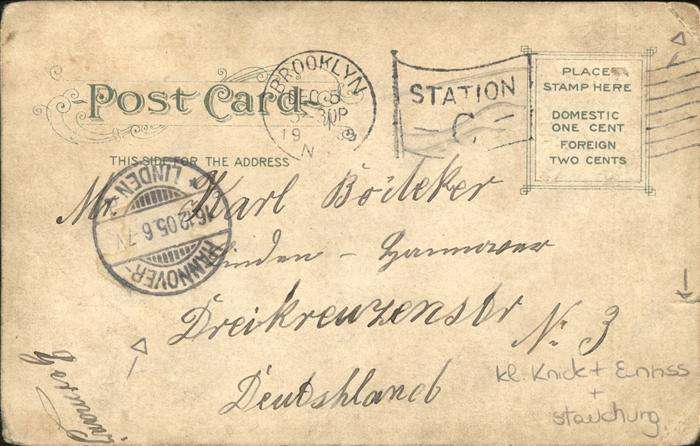 BROOKLYN
19
N
STATION
C.
POST CARD
PLACE
STAMP HERE
DOMESTIC
ONE CENT
FOREIGN
TWO CENTS
THIS SIDE FOR THE ADDRESS
LINDEN
16.12.05.6-7N
HANNOVER-
Mr. Karl Bödeker
Linden - Hannover
Dreikreuzenstr N: 3
Deutshland
Germany
kl. Knick + Einriss
+
stauchung